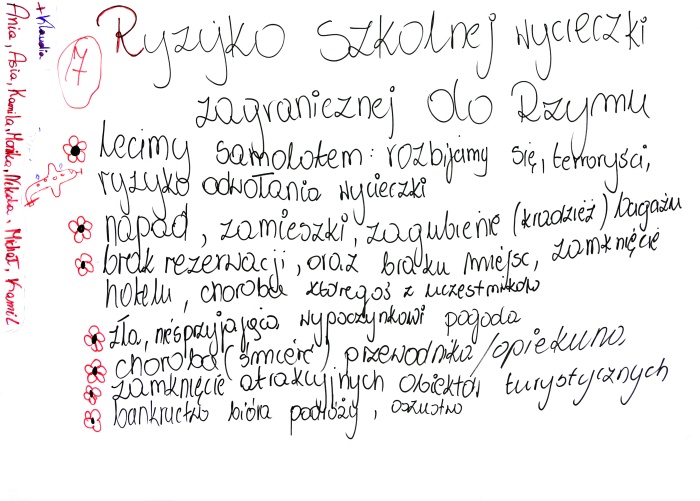 + Klaudia
Ania, Asia, Kamila, Monika, Nikola, Michał, Kamil
7
Ryzyko szkolnej wycieczki
zagranicznej do Rzymu
Lecimy samolotem: rozbijamy się, terroryści,
ryzyko odwołania wycieczki
napad, zamieszki, zagubienie (kradzież) bagażu
brak rezerwacji, oraz braku miejsc, zamknięcie
hotelu, choroba któregoś z uczestników
zła, niesprzyjająca wypoczynkowi pogoda
choroba (śmierć) przewodnika/opiekuna,
zamknięcie atrakcyjnych obiektów turystycznych
bankructwo biura podróży, oszustwo